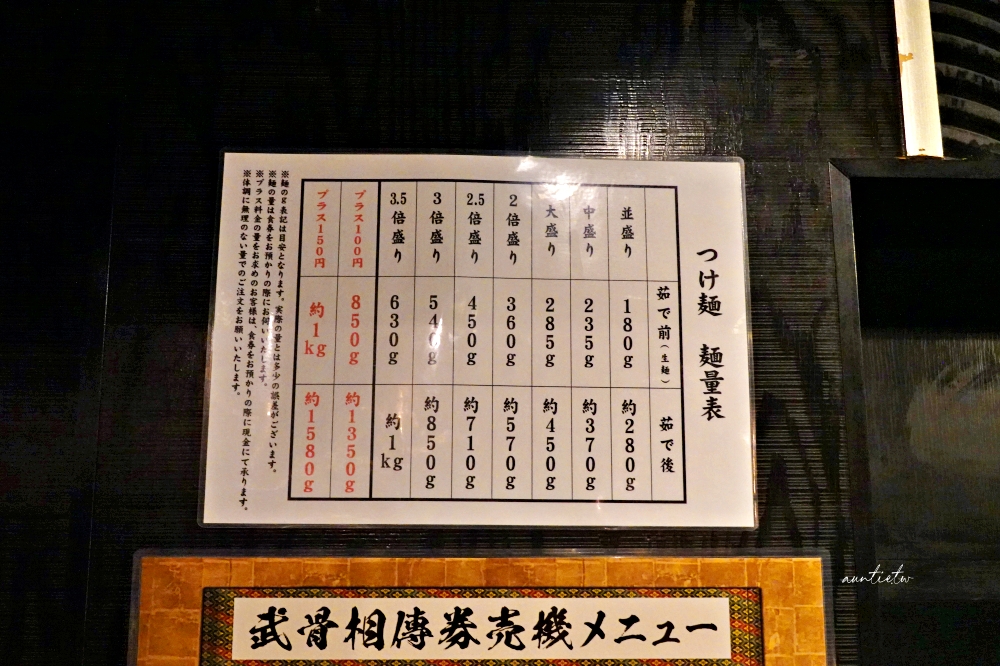 つけ麺 麺量表
茹で前（生麺） 茹で後
並盛り 180g 約280g
中盛り 235g 約370g
大盛り 285g 約450g
2倍盛り 360g 約570g
2.5倍盛り 450g 約710g
3倍盛り 540g 約850g
3.5倍盛り 630g 約1kg
プラス100円 850g 約1350g
プラス150円 約1kg 約1580g
※麺のg表記は目安となります。実際の量とは多少の誤差がございます。
※麺の量は食券をお預かりの際にお伺いいたします。
※プラス料金の量をお求めのお客様は、食券をお預かりの際に現金にて承ります。
※体調に無理のない量でのご注文をお願いいたします。
武骨相傳券売機メニュー
auntietw